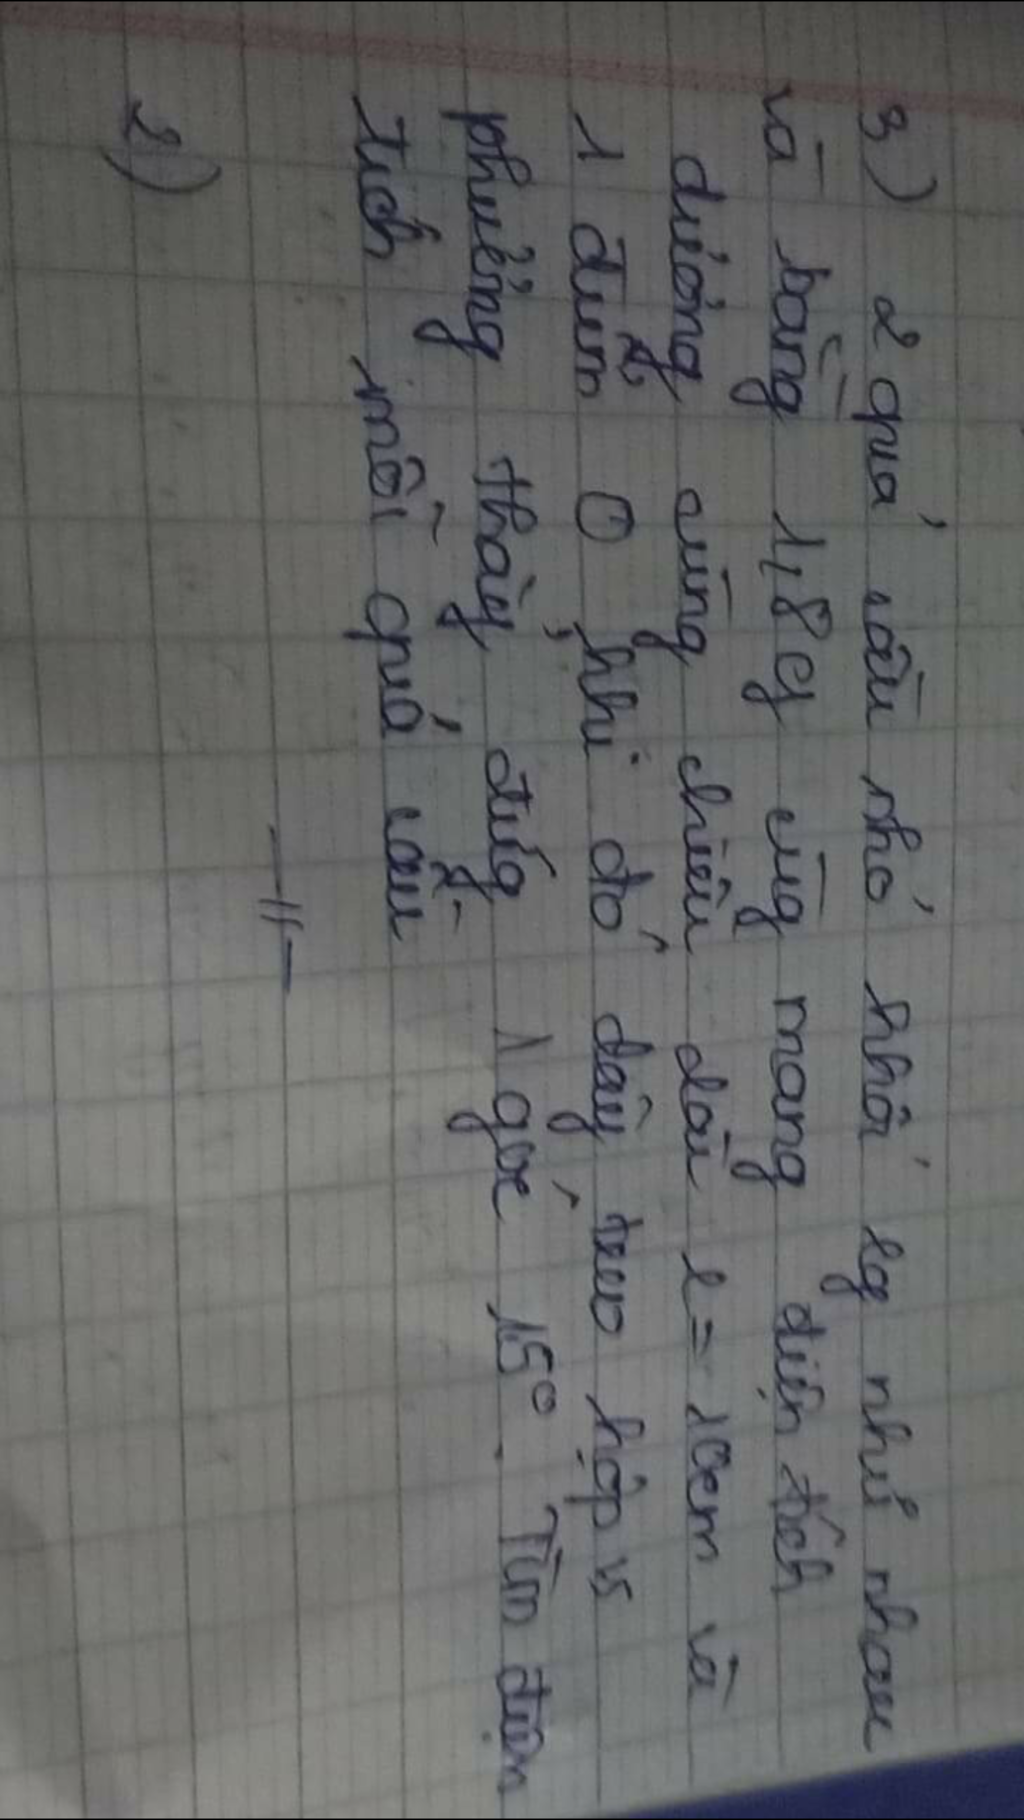 3) 2 quả cầu nhỏ khối lg như nhau
và bằng 1,8g cùg mang điện tích
dương cùng chiều dài l = 10cm và
1 điểm O, khi đó dây treo hợp vs
phương thẳng đứg 1 góc 15°. Tìm điện
tích mỗi quả cầu
—//—
2)